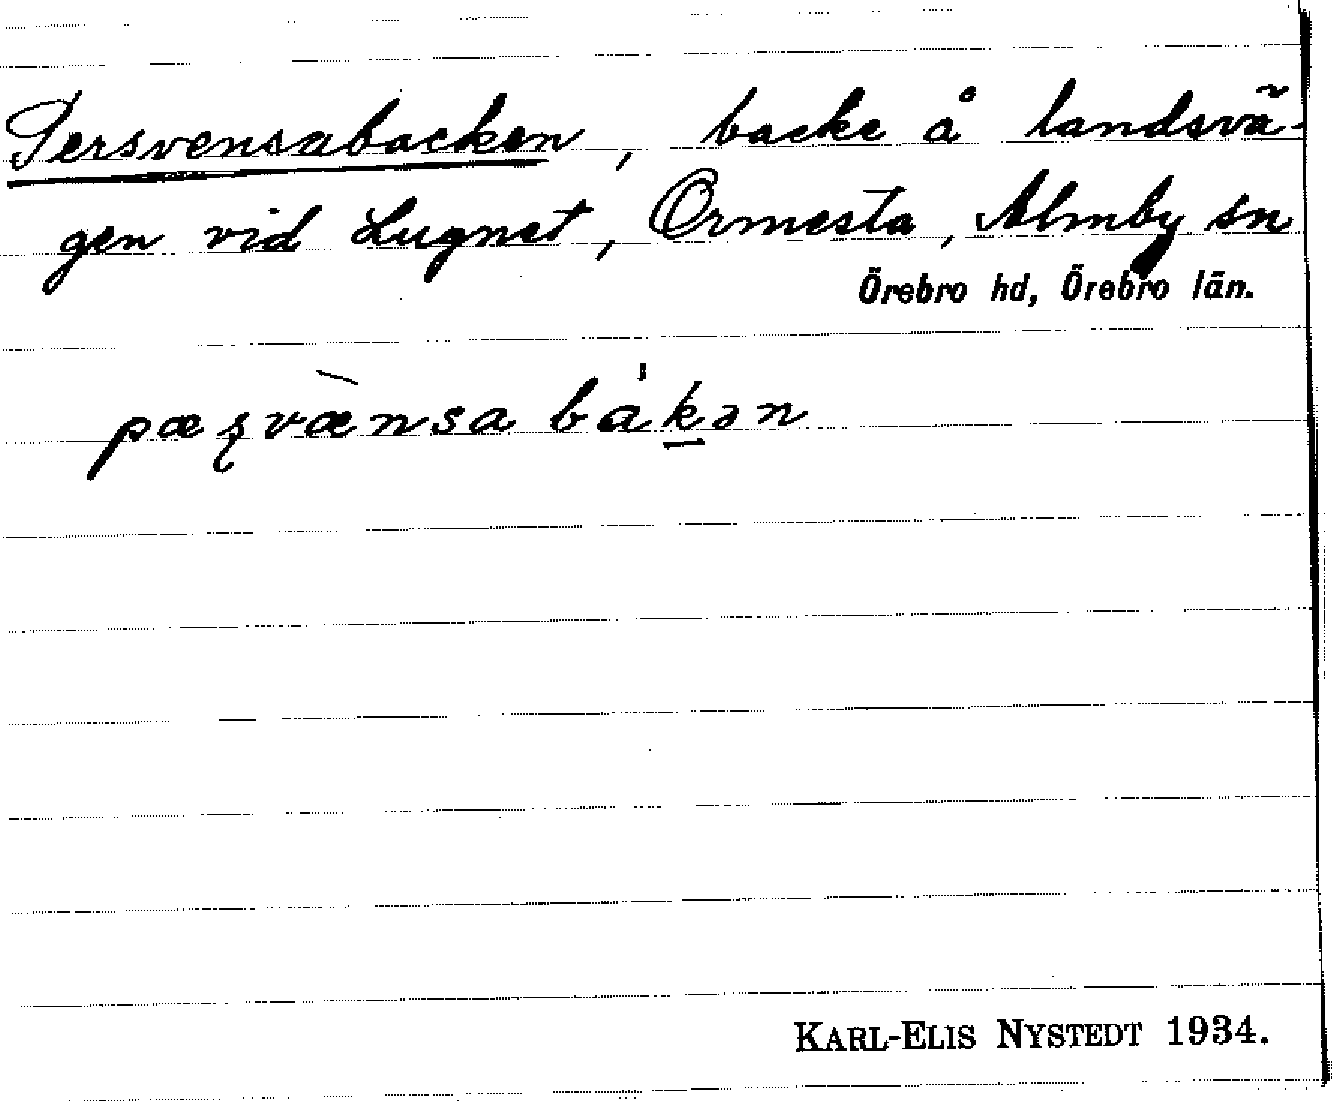 Persvensabacken, backe å landsvä-
gen vid Lugnet, Ormesta, Almby sn
Örebro hd, Örebro län.
pæʂvæ̀nsa bákən
KARL-ELIS NYSTEDT 1934.